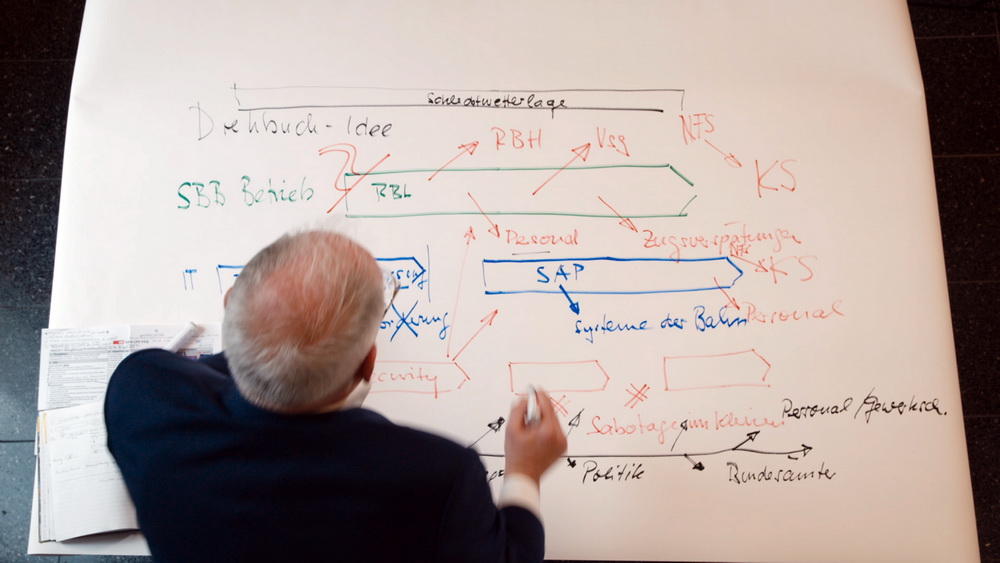 Schlechtwetterlage
Drehbuch-Idee
RBH
Vsg
NFS
KS
SBB Betrieb
RBL
Personal
Zugsverspätungen
NFS
KS
IT
SAP
Systeme der Bahn
Personal
curity
Sabotage im Kleinen
Personal / Gewerksch.
Politik
Bundesämter